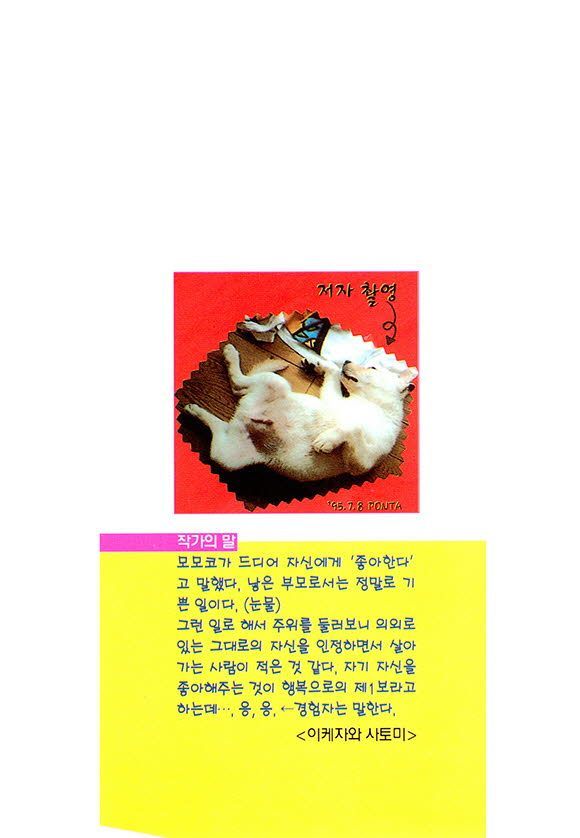 저자 촬영
'95.7.8 PONTA
작가의 말
모모코가 드디어 자신에게 '좋아한다'
고 말했다. 낳은 부모로서는 정말로 기
쁜 일이다. (눈물)
그런 일로 해서 주위를 둘러보니 의외로
있는 그대로의 자신을 인정하면서 살아
가는 사람이 적은 것 같다. 자기 자신을
좋아해주는 것이 행복으로의 제1보라고
하는데…. 응, 응. ←경험자는 말한다.
<이케자와 사토미>